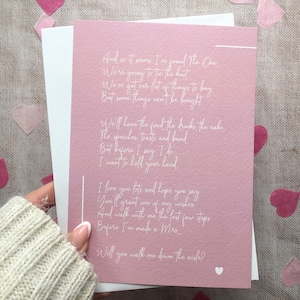 And so it seems I've found The One
We're going to tie the knot
We've got our list of things to buy
But some things can't be bought

We'll have the food the drinks the cake
The speeches toasts and band
But before I say I do
I want to hold your hand

I love you lots and hope you say
You'll grant one of my wishes
And walk with me the last few steps
Before I'm made a Mrs

Will you walk me down the aisle?